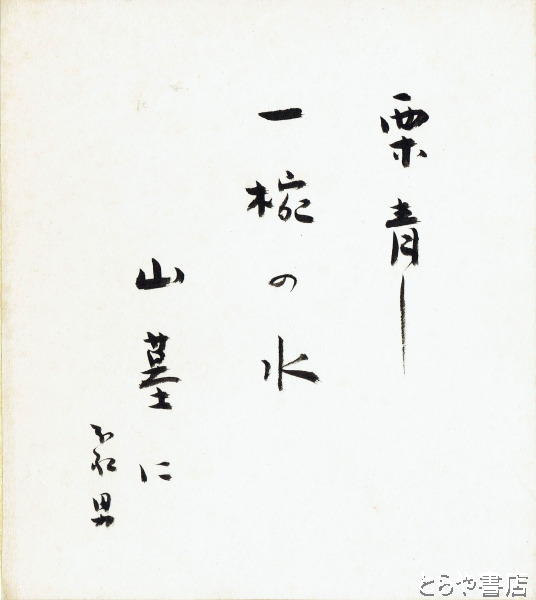 栗青し
一椀の水
山墓に
不死男
とらや書店